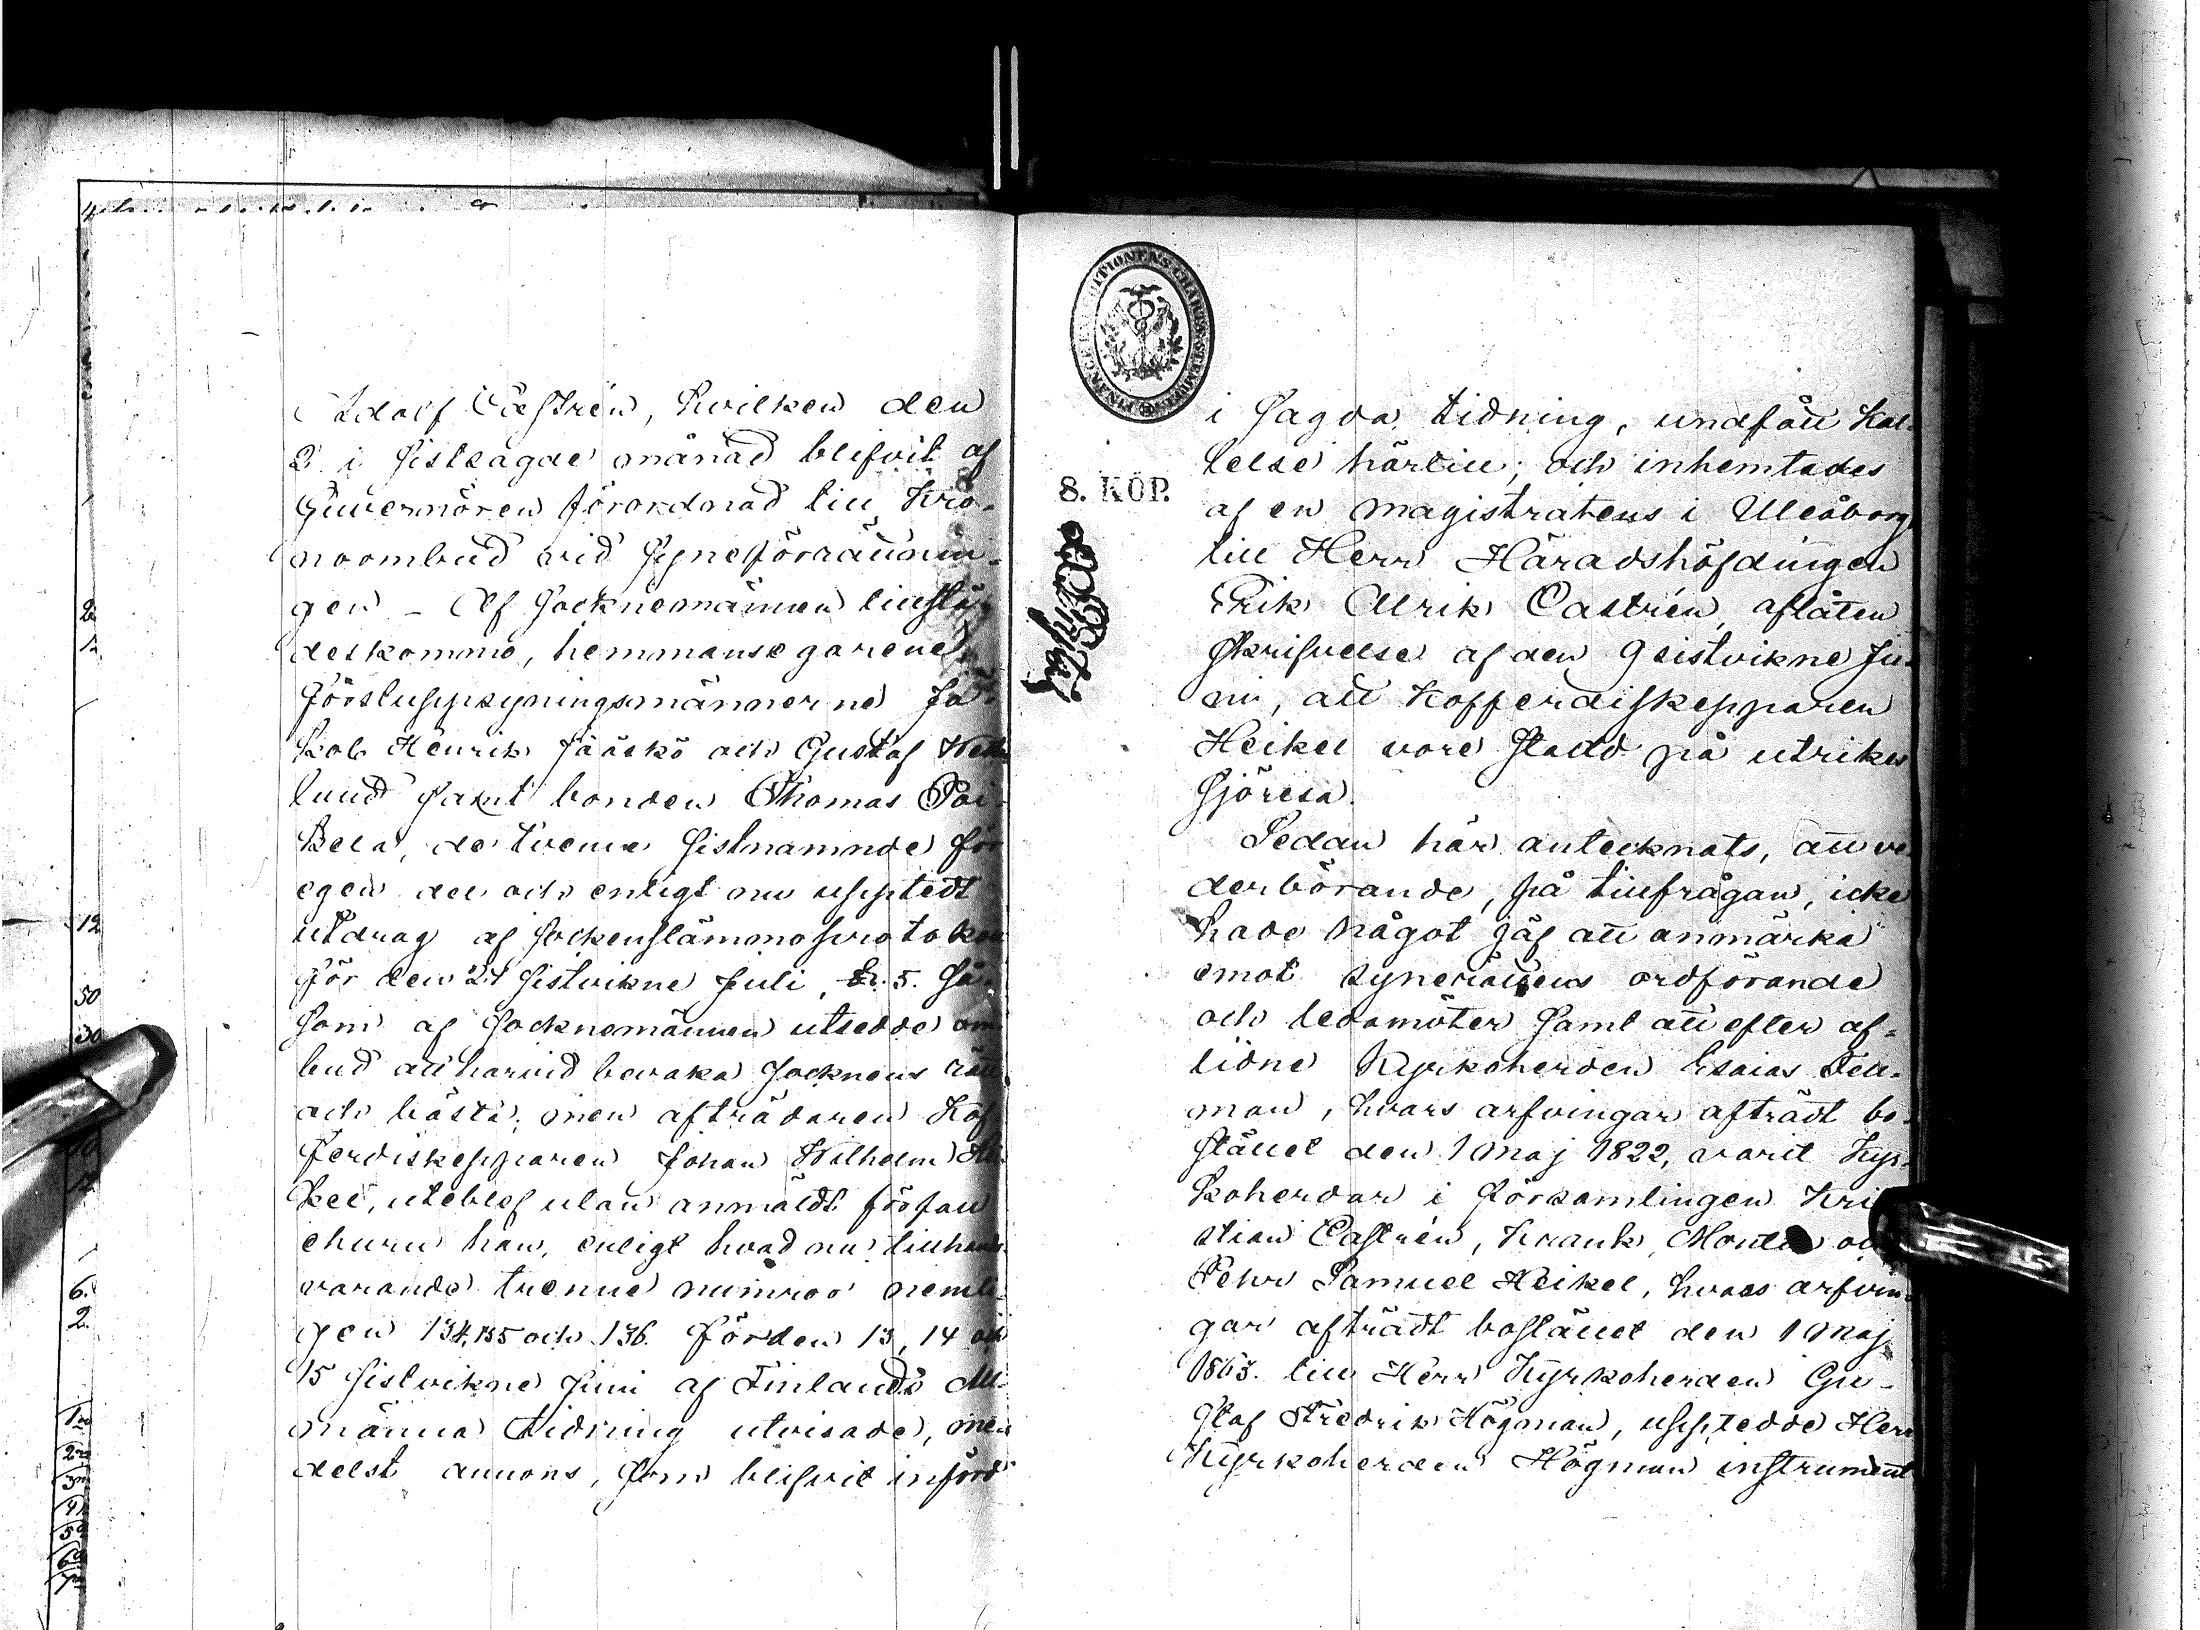 Adolf Castrén, hvilken den
2 i sistsagde månad blifvit af
Guvernören förordnad till Kro-
noombud vid syneförrättnin-
gen - Af socknemännen tillstä-
deskommo, hemmansegarene,
förstuppsyningsmännerne Ja-
kob Henrik Jääskö och Gustaf Wed
lund samt bonden Thomas Poi-
kela, de tvenne sistnamnde för
egen del och enligt nu uppteedt
utdrag af sockenstämmoprotokoll
för den 24 sistvikne Juli, 5. så
som af socknemännen utsedde om
bud att harvid bevaka socknens rätt
och bästa; men afträdaren Kof
ferdiskepparen Johan Wilhelm Hei
kel, uteblef utan anmäldt förfall
ehuru han, enligt hvad nu tillhanda
varande trenne numror nemli
gen 134, 135 och 136 för den 13, 14 och
15 sistvikne Juni af Finlands All-
männa Tidning utvisade, me
delst annons, som blifvit införd
FINANCE EXPEDITIONENS CHARTÆ STEMPEL
8. KOP.
i sagda tidning, undfått kal-
lelse härtill; och inhemtades
af en magistratens i Uleåborg
till Herr Häradshöfdingen
Erik Ulrik Castrén aflåten
skrifvelse af den 9 sistvikne Ju-
ni, att Kofferdiskepparen
Heikel vore stadd på utrikes
sjöresa.
Sedan här antecknats, att ve-
derbörande, på tillfrågan, icke
hade något jäf att anmärka
emot synerättens ordförande
och ledamöter samt att efter af-
lidne Kyrkoherden Esaias Fell-
man, hvars arfvingar afträdt bo-
stället den 1 Maj 1822, varit Kyr-
koherdar i församlingen Kri
stian Castrén, Krank, och
Pehr Samuel Heikel, hvars arfvin-
gar afträdt bostället den 1 Maj
1863. till Herr Kyrkoherden Gu-
staf Fredrik Högman, uppteedde Herr
Kyrkoherden Högman instrument